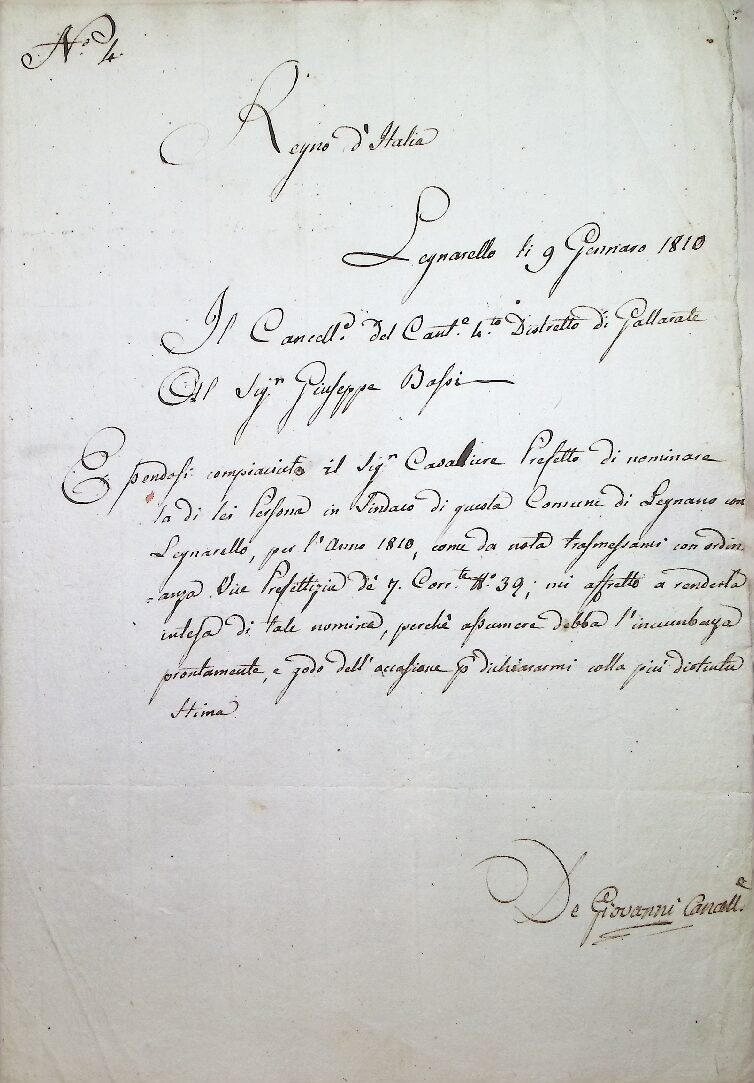 N.º 4.
Regno d'Italia
Legnarello li 9 Gennaro 1810
Il Cancell.e del Cant.e 4.to Distretto di Gallarate
Al Sig.r Giuseppe Bossi
Essendosi compiaciuto il Sig.r Cavaliere Prefetto di nominare
la di lei Persona in Sindaco di questa Comune di Legnano con
Legnarello, per l'Anno 1810, come da nota trasmessami con ordin
=anza Vice Prefettizia de 7. Corr.te N.º 39; mi affretto a renderla
intesa di tale nomina, perchè assumere debba l'incumbenza
prontamente, e godo dell'occasione p dichiararmi colla più distinta
stima
De Giovanni Cancell.e